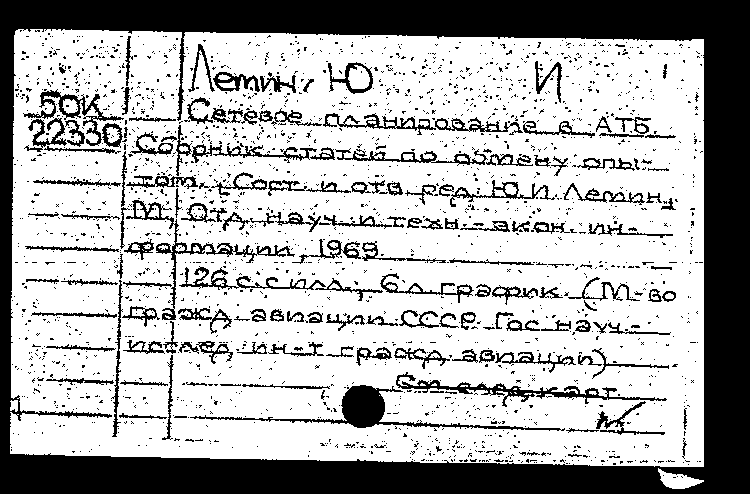 Лемин, Ю И
50К
22330
Сетевое планирование в АТБ.
Сборник статей по обмену опы-
том. [Сост. и отв. ред. Ю.И. Лемин]
М., Отд. науч. и техн.-экон. ин-
формации, 1969.
126 с. с илл.; 6 л. график. (М-во
гражд. авиации СССР. Гос. науч.-
исслед. ин-т гражд. авиации).
См. след. карт.